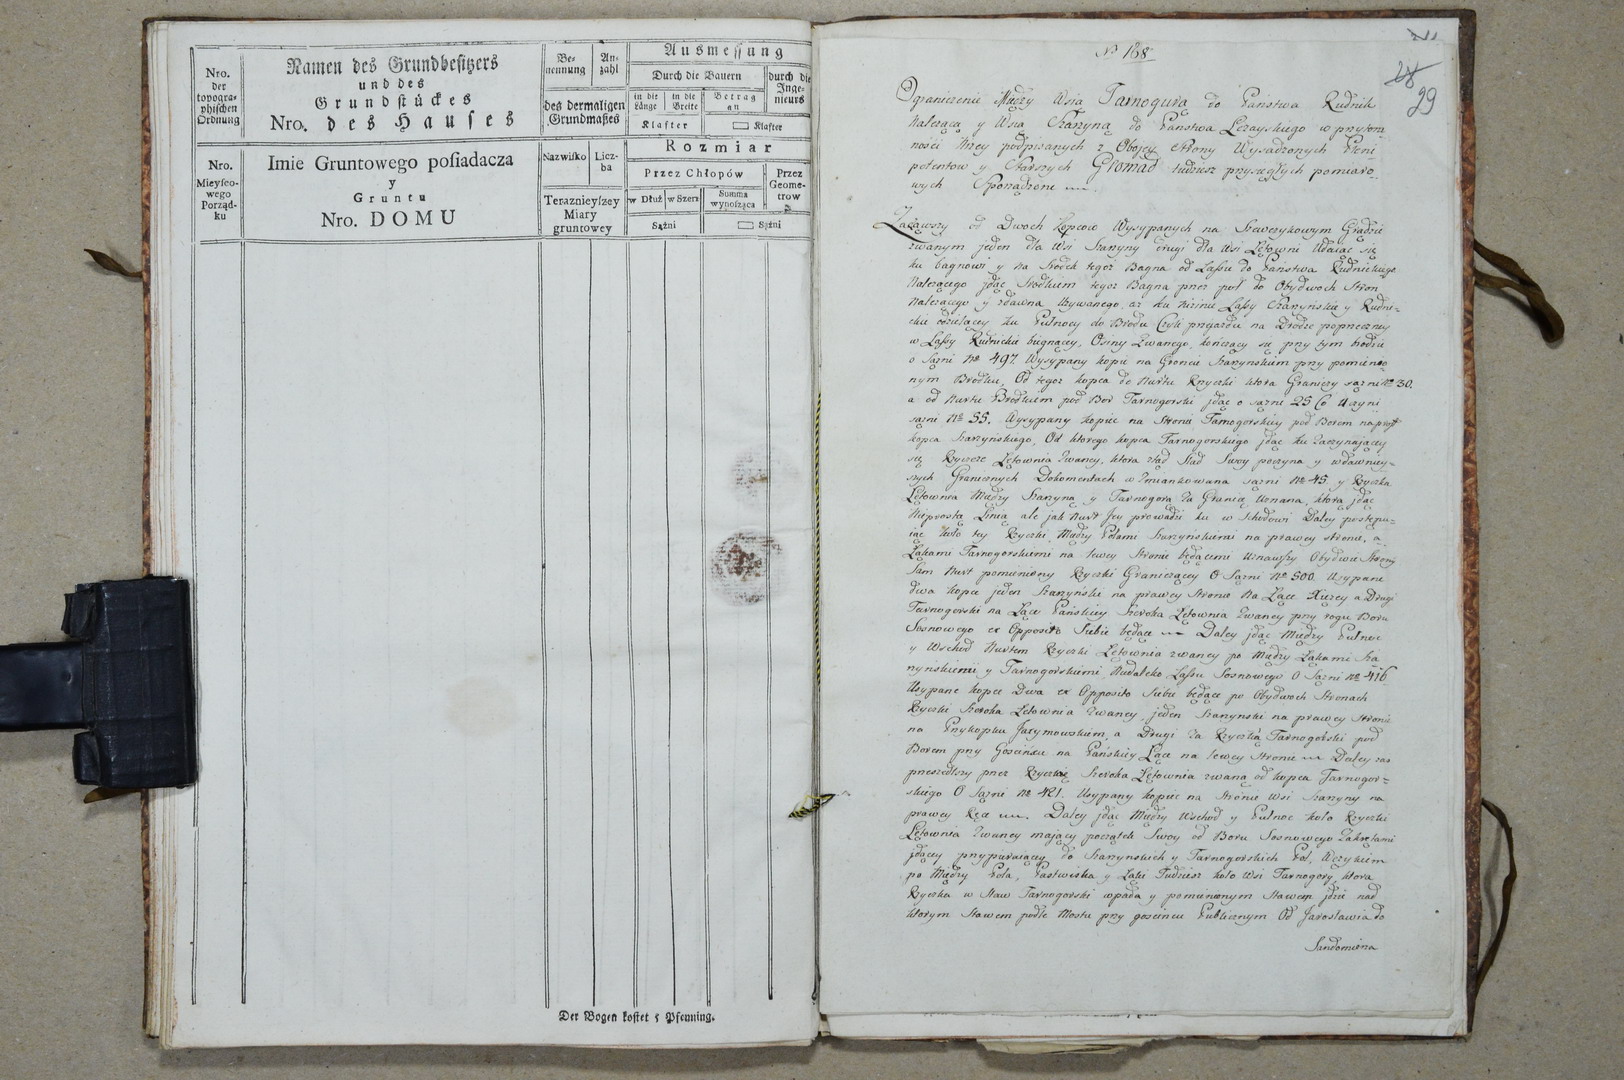 Nro.
der
topogra-
phischen
Ordnung
Namen des Grundbesitzers
und des
Grundstückes
Nro. des Hauses
Be-
nennung
An-
zahl
des dermaligen
Grundmaßes
Ausmessung
Durch die Bauern
durch die
Inge-
nieurs
in die
Länge
in die
Breite
Betrag
an
Klafter
Klafter
Nro.
Mieyſco-
wego
Porząd-
ku
Imie Gruntowego poſiadacza
y
Gruntu
Nro. DOMU
Nazwiſko
Licz-
ba
Teraznieyſzey
Miary
gruntowey
Rozmiar
Przez Chłopów
Przez
Geome-
trow
w Dłuż
w Szerz
Summa
wynoſząca
Sążni
Sążni
Der Bogen kostet 5 Pfenning.
29
No 168
Ograniczenie Między Wsią Tarnogurą do Państwa Rudnik
Należącą y Wsią Szarzyną do Państwa Lezayskiego w przytom
ności Niżey podpisanych z Obojey strony Wysadzonych Pleni
potentow y Starszych Gromad tudziesz przysięgłych pomiaro
wych Sporządzone
Zacząwszy od Dwoch Kopcow Wysypanych na Szewczykowym Grądzie
zwanym jeden dla Wsi Szarzyny drugi dla Wsi Lętowni Udaiąc się
ku bagnowi y na Srodek tegoż Bagna od Lassu do Państwa Rudnickiego
Należącego jdąc Srodkiem tegoż Bagna przez puł do Obydwoch Stron
Należącego y zdawna Używanego, aż ku Lassy Szarzyńskie y Rudni-
ckie dzielącey ku Pułnocy do Brodu Czyli przejazdu na Drodze poprzeczney
w Lassy Rudnickie bieguącey, Osiny Zwanego, kończący się przy tym brodzie
o Sążni No 497. Wysypany kopiec na Groncie Szarzynskim przy pomienio
nym Brodku, Od tegoż kopca do Nurtu Rzyczki ktora Graniczy sążni No 30.
a od Nurtu Brodkiem pod Bor Tarnogorski jdąc o sążni 25 Co Uczyni
sążni No 55. Wysypany kopiec na Stronie Tarnogorskiey pod Borem naprost
kopca Szarzyńskiego, Od ktorego kopca Tarnogorskiego jdąc ku Zaczynaiącey
się Rzyczce Lętownia Zwaney, ktora ztąd Swoy poczyna y wdawniey-
szych Granicznych Dokomentach wzmiankowana sążni No 45 y Rzyczka
Lętownia Między Szarzyną y Tarnogorą Za Granicę Uznana, ktora jdąc
Nieprostą Linią ale jak Nurt Jey prowadzi ku w Schodowi Daley postępu-
iąc koło tey Rzyczki Między Polami Szarzyńskiemi na prawey stronie, a
Łąkami Tarnogorskiemi na lewey stronie będącemi Uznawszy Obydwie Strony
Sam Nurt pomieniony Rzyczki Graniczącey O Sążni No 500. Usypane
dwa kopce jeden Szarzyński na prawey Stronie Na Łące Xiężey a Drugi
Tarnogorski na Łące Pańskiey Szeroka Lętownia Zwaney przy rogu Boru
Sosnowego ex Opposito Siebie będące Daley jdąc Między Pułnoc
y Wschod Nurtem Rzyczki Lętownia zwaney po Między Łąkami Sza
rzyńskiemi y Tarnogorskiemi Niedaleko Lassu Sosnowego O Sążni No 416
Usypane kopce Dwa ex Opposito Siebie będące po Obydwoch Stronach
Rzyczki Szeroka Lętownia Zwaney, jeden Szarzynski na prawey Stronie
na Przykopku Jarzymowskiem, a Drugi Za Rzyczką Tarnogorski pod
Borem przy Gościńcu na Pańskiey Łące na lewey Stronie Daley zas
przeszedłszy przez Rzyczkię Szeroka Lętownia zwaną od kopca Tarnogor-
skiego O Sążni No 421. Usypany kopiec na Stronie Wsi Szarzyny na
prawey Ręce. Daley jdąc Między Wschod y Pułnoc koło Rzyczki
Lętownia Zwaney maiącey początek Swoy od Boru Sosnowego Zakrętami
jdącey przypieraiącey do Szarzynskich y Tarnogorskich Pol,
po Między Pola, Pastwiska y Łąki Tudziesz koło Wsi Tarnogory, ktora
Rzyczka w Staw Tarnogorski wpada y pomienionym Stawem jdzie nad
ktorym Stawem podle Mostu przy gościncu Publicznym Od Jarosławia do
Sandomirza